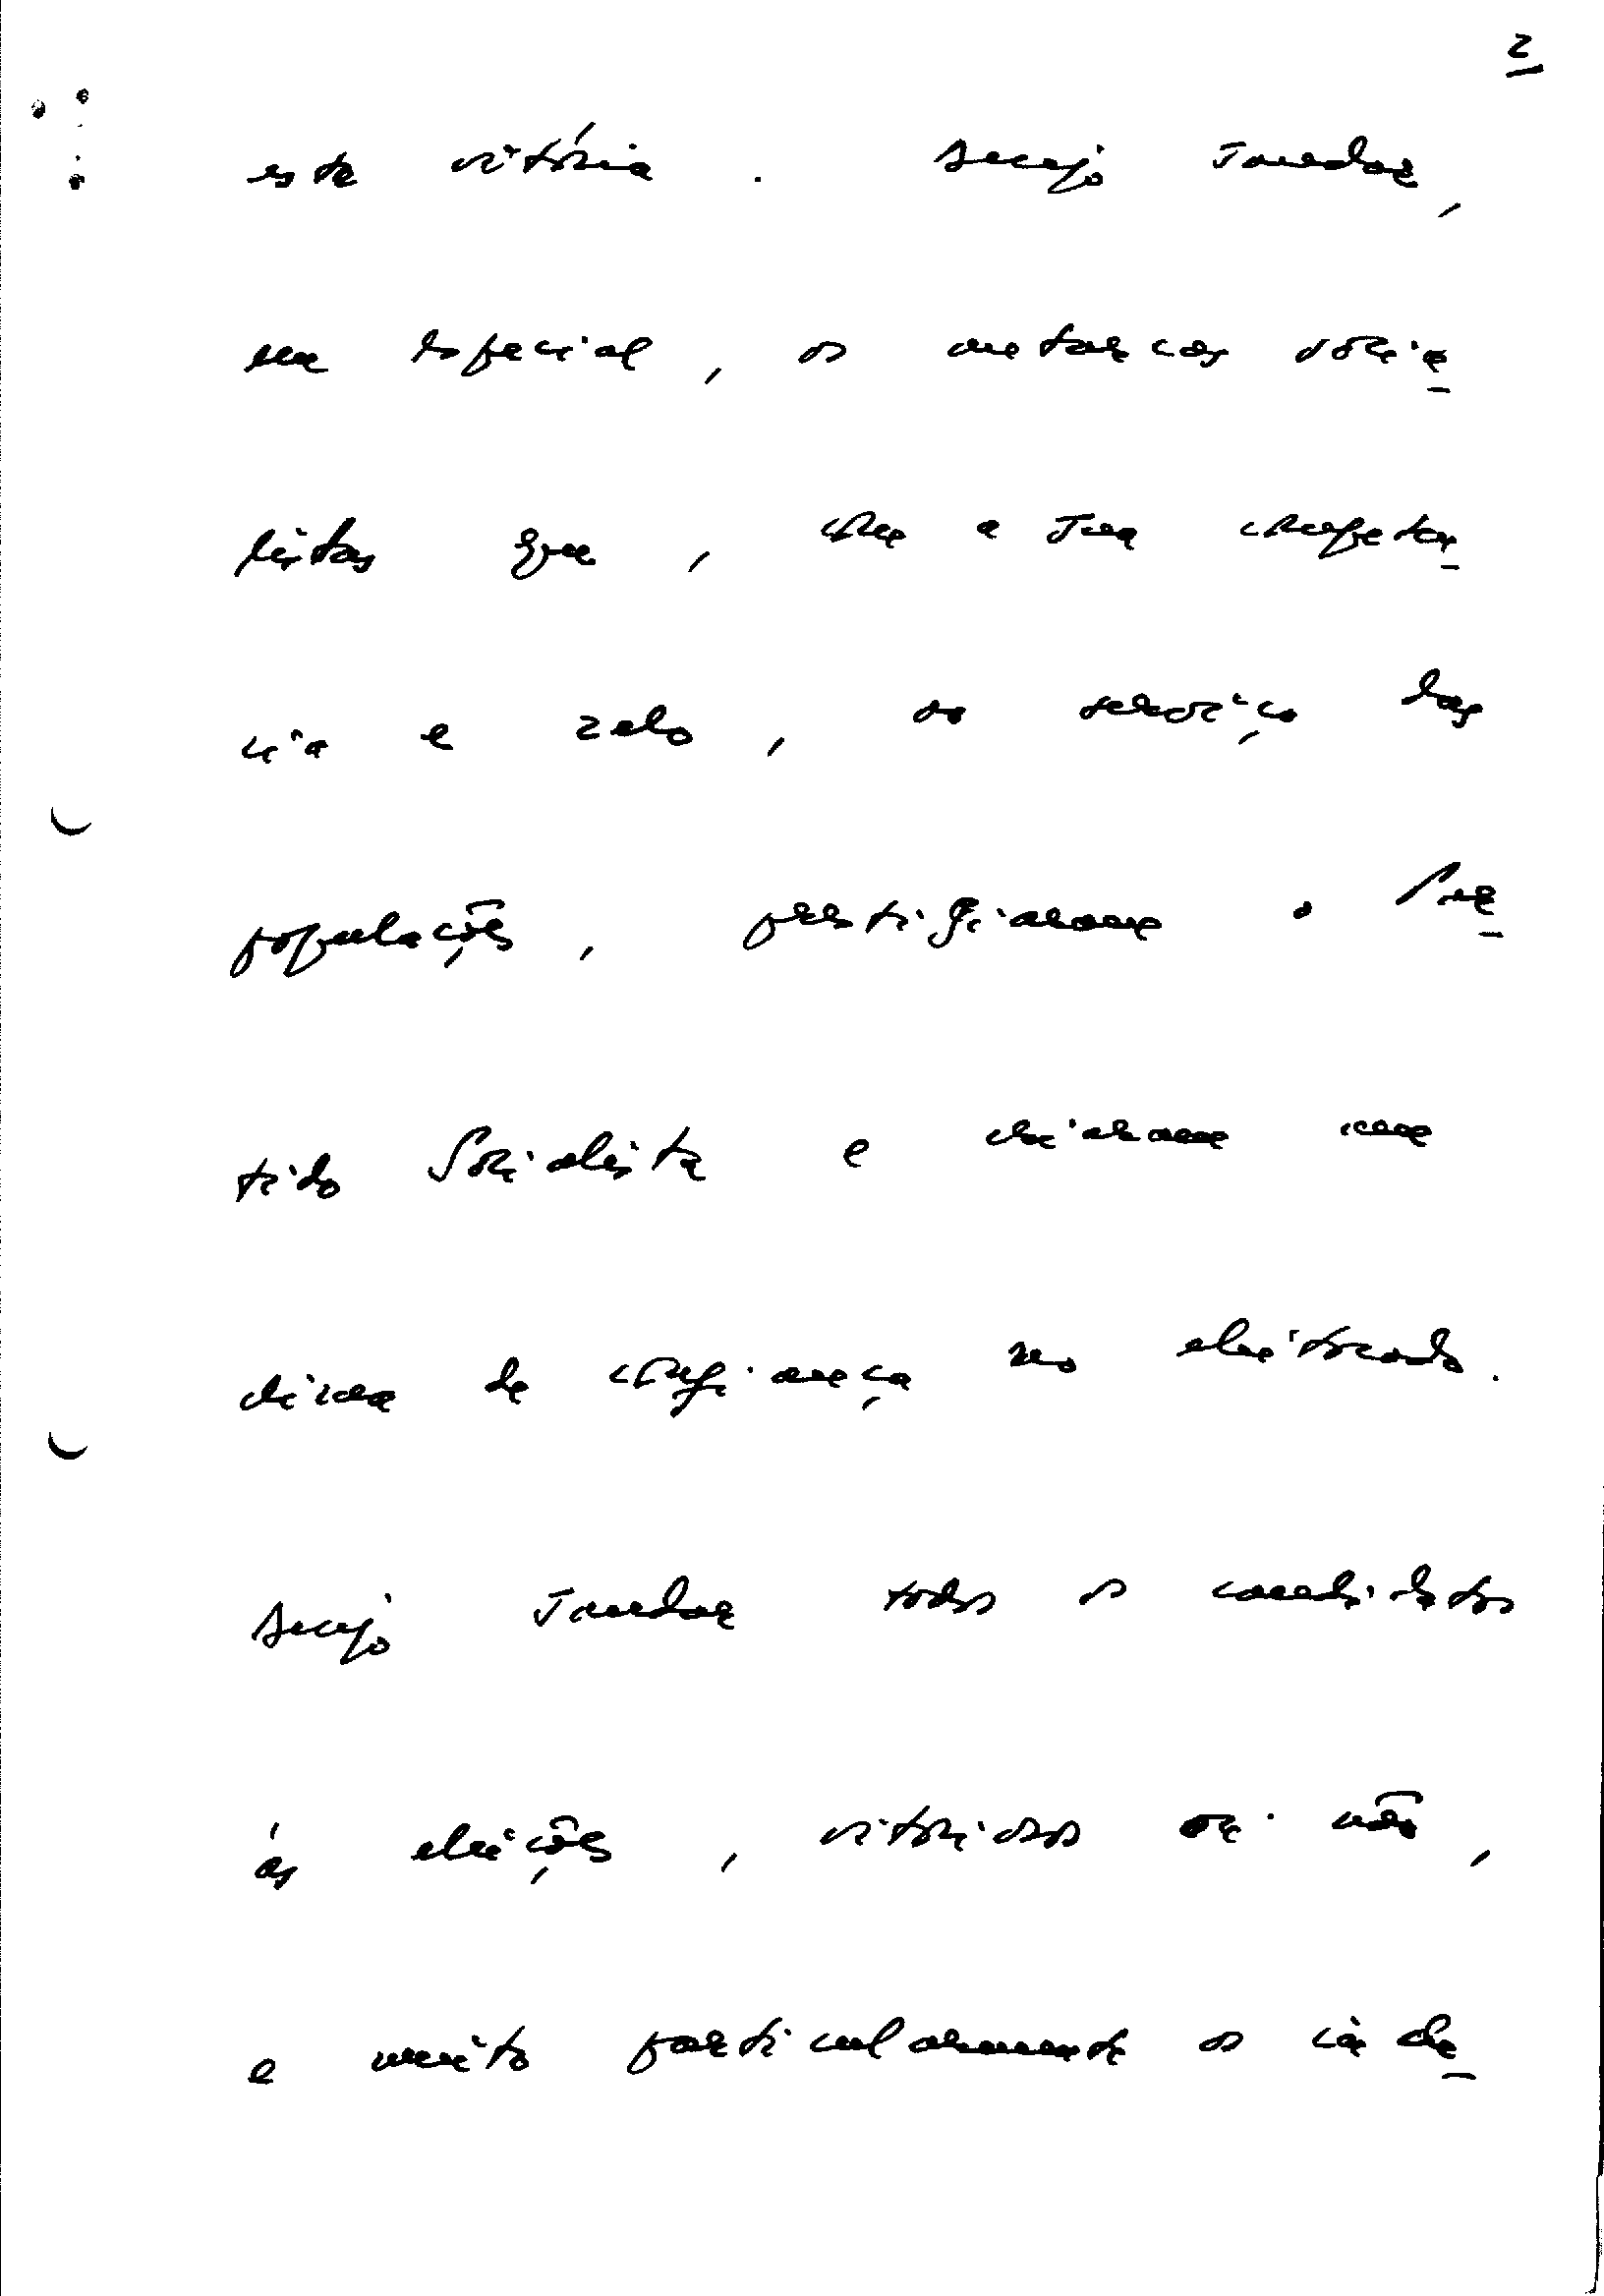 2
esta vitória. Desejo saudar,
em especial, os autarcas socia
listas que, com a sua competên
cia e zelo, ao serviço das
populações, prestigiaram o Par
tido Socialista e criaram um
clima de confiança no eleitorado.
Desejo saudar todos os candidatos
às eleições, vitoriosos ou não,
e muito particularmente os